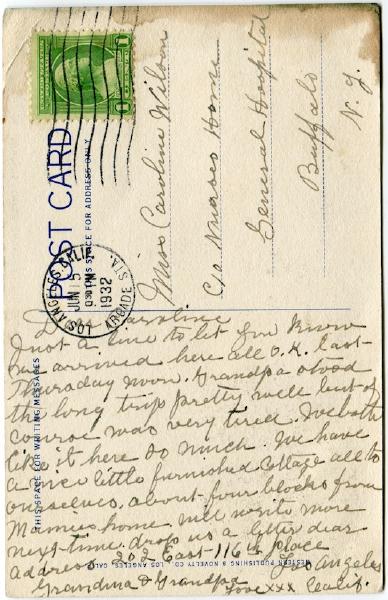 POST CARD
THIS SPACE FOR ADDRESS ONLY
LOS ANGELES CALIF.
ARCADE STA.
JUN 15
PM
1932
Miss Caroline Wilson
c/o Nurses Home
General Hospital
Buffalo
N. Y.
THIS SPACE FOR WRITING MESSAGES
WESTERN PUBLISHING & NOVELTY CO., LOS ANGELES, CALIF.
Dear Caroline
Just a line to let you know
we arrived here all O.K. last
Thursday noon. Grandpa stood
the long trip pretty well but of
course was very tired. We both
like it here so much. We have
a nice little furnished cottage all to
ourselves, about four blocks from
Mamies home. will write more
next time. drop us a letter dear
Address 202 East-116th place
Los Angeles
Grandma & Grandpa
Love xxx Calif.